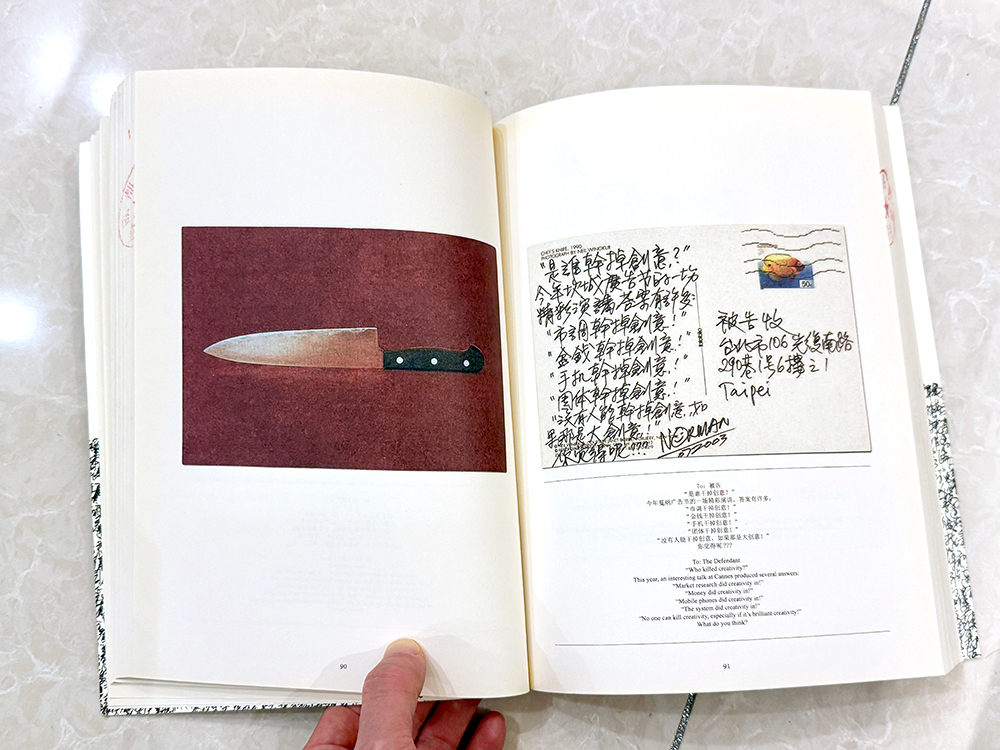 90
CHEF'S KNIFE, 1990
PHOTOGRAPH BY NEIL WINOKUR
"是誰幹掉創意?"
今年坎城廣告节的一場
精彩演講 答案有許多:
"市調幹掉創意!"
"金錢幹掉創意!"
"手机幹掉創意!"
"團体幹掉創意!"
"没有人能幹掉創意,如
果那是大創意!"
你覺得呢???
NORMAN
07 2003
50c
被告收
台北市106光復南路
290巷1号6樓之1
Taipei
To: 被告
"是谁干掉创意!"
今年戛纳广告节的一场精彩演讲，答案有许多:
"市调干掉创意!"
"金钱干掉创意!"
"手机干掉创意!"
"团体干掉创意!"
"没有人能干掉创意，如果那是大创意!"
你觉得呢???
To: The Defendant
"Who killed creativity?"
This year, an interesting talk at Cannes produced several answers:
"Market research did creativity in!"
"Money did creativity in!"
"Mobile phones did creativity in!"
"The system did creativity in!"
"No one can kill creativity, especially if it's brilliant creativity!"
What do you think?
91